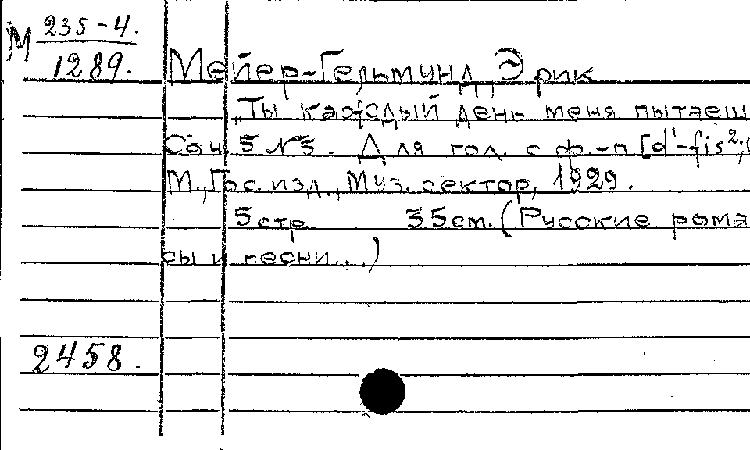 М 235-4.
1289.
Мейер-Гельмунд, Эрик
„Ты каждый день меня пытаеш
Соч. 5 № 3. Для гол. с ф.-п [d¹-fis²,
М., Гос. изд., Муз. сектор, 1929.
5 стр 35 см. (Русские рома
сы и песни...)
2458.